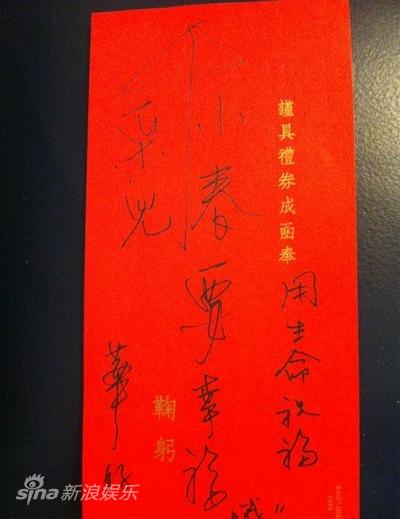 謹具禮券成函奉
用生命祝福
小春
采兒
要幸福
鞠躬
華仔
sina新浪娱乐